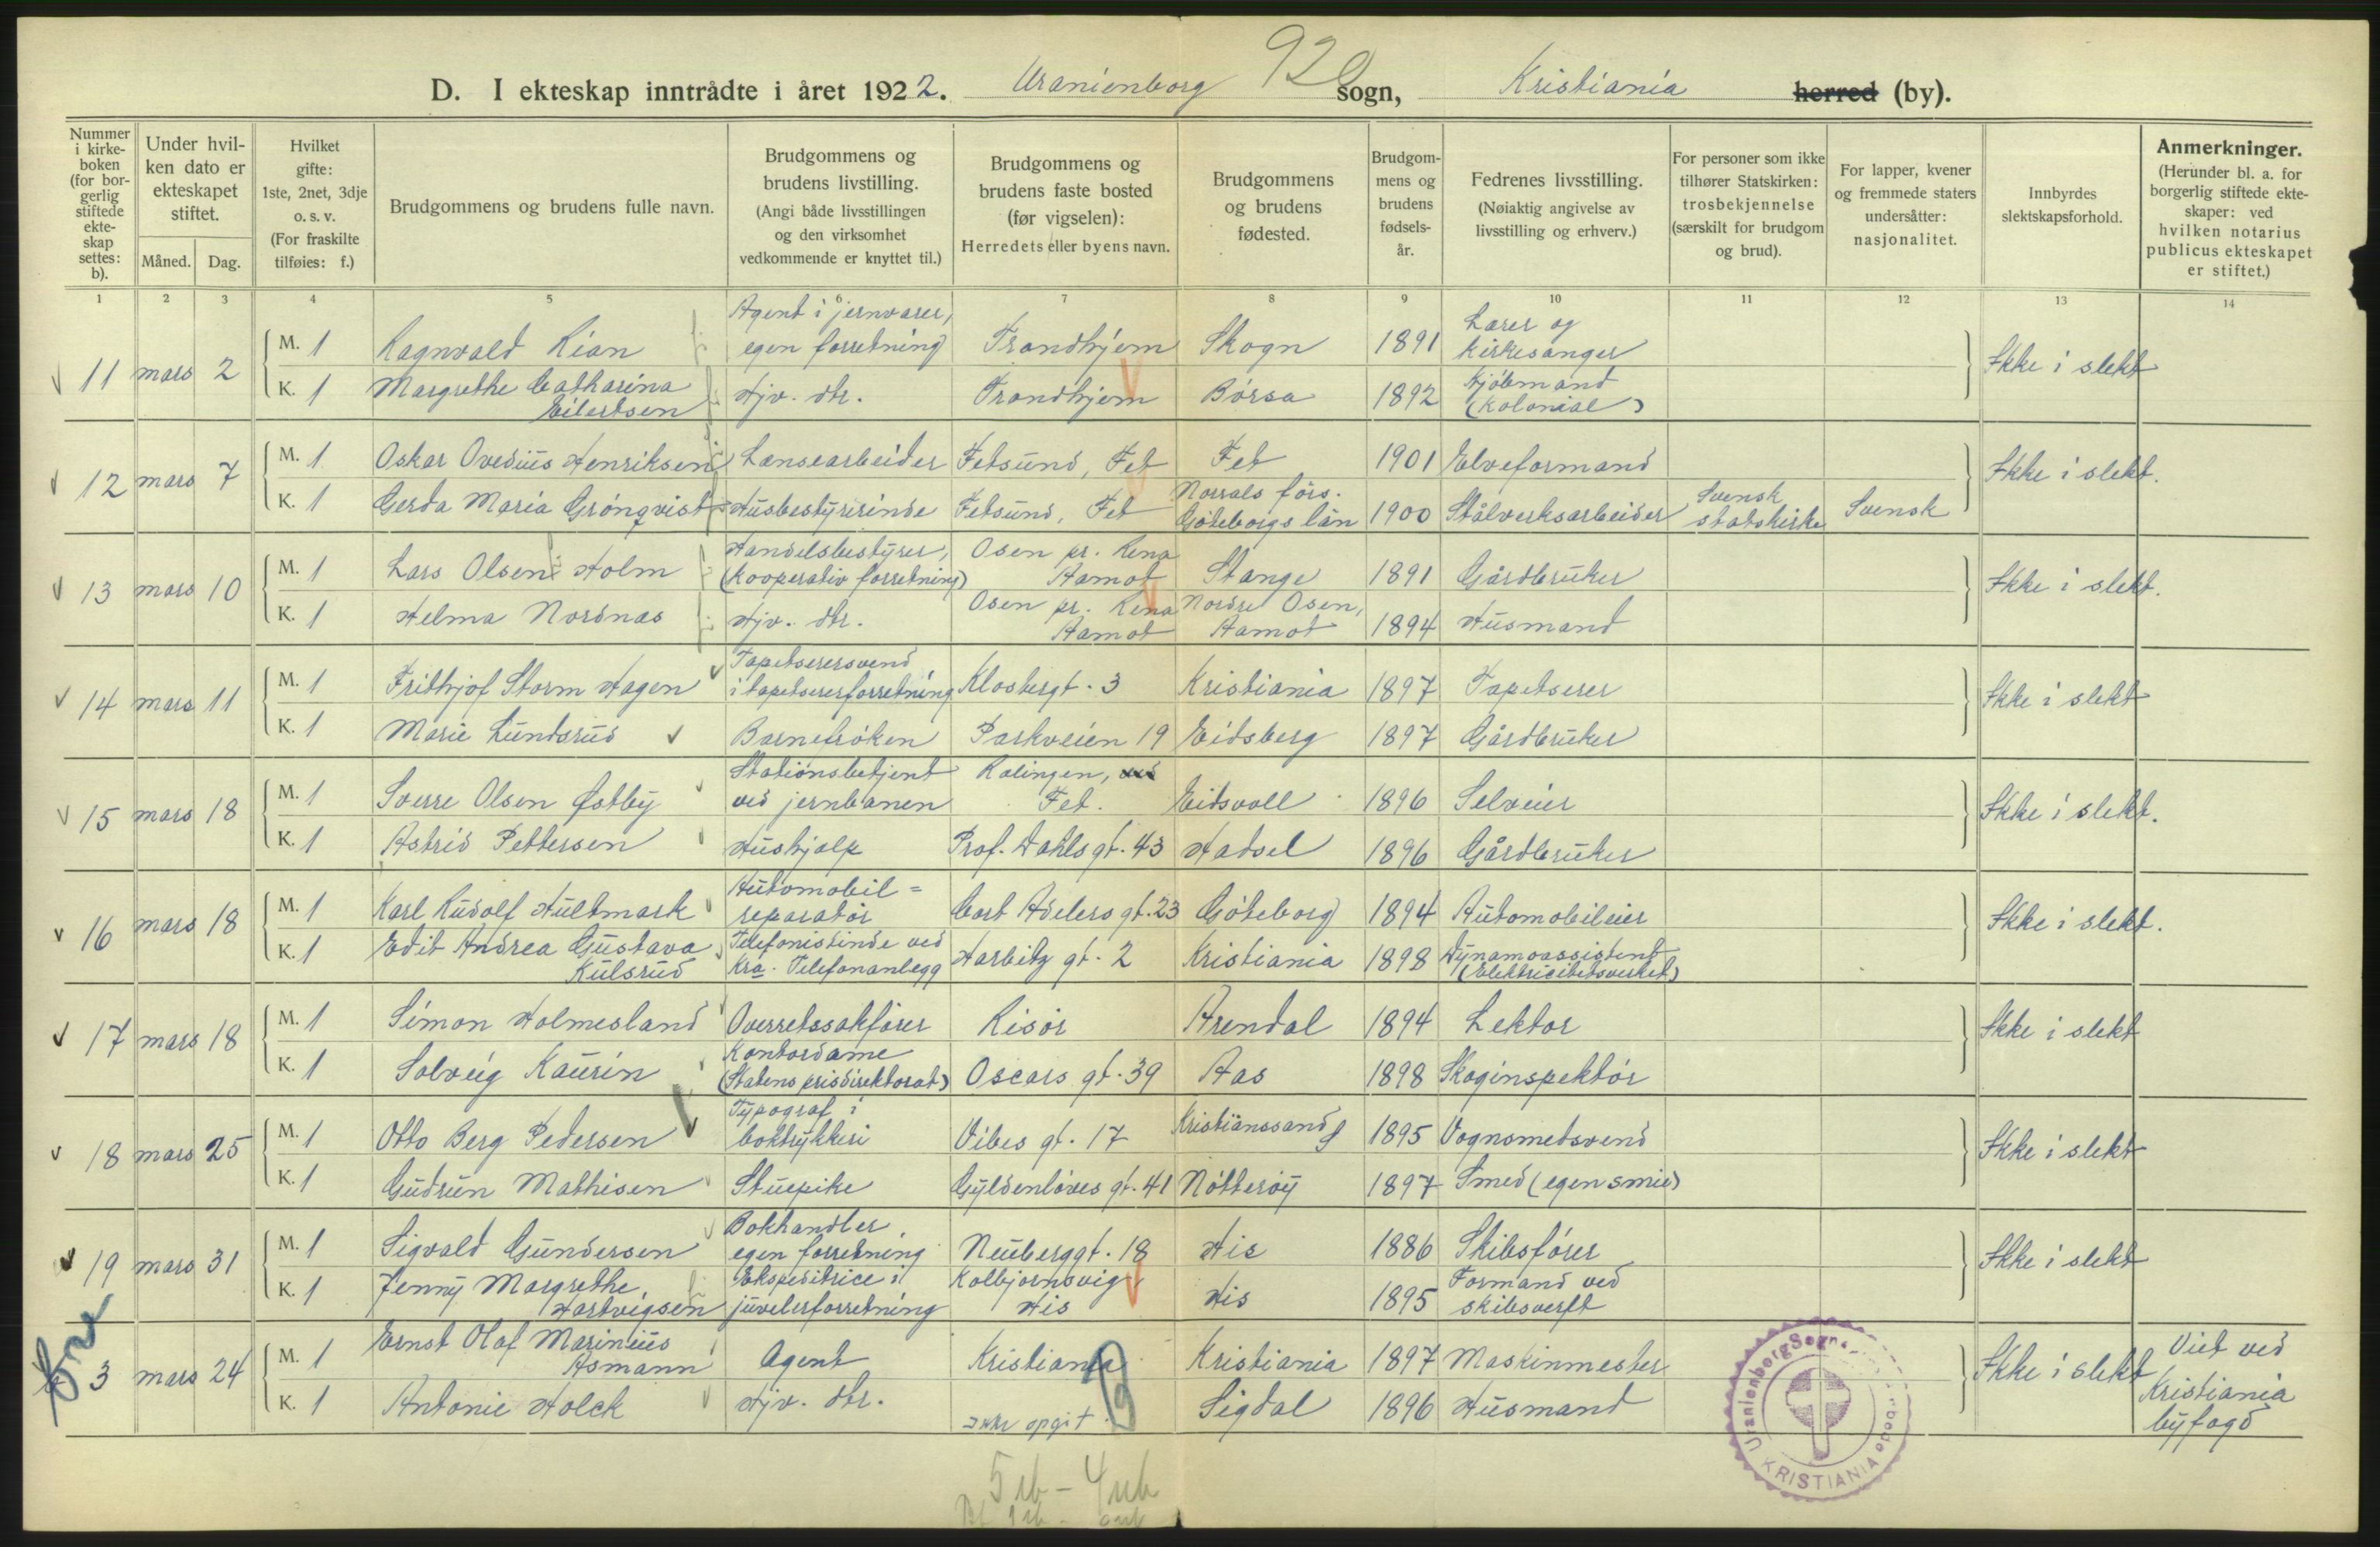 920
D. I ekteskap inntrådte i året 1922. Uranienborg sogn, Kristiania herred (by).
Nummer i kirke-boken (for bor-gerlig stiftede ekte-skap settes: b).
Under hvil-ken dato er ekteskapet stiftet.
Måned. Dag.
Hvilket gifte: 1ste, 2net, 3dje o. s. v. (For fraskilte tilføies: f.)
Brudgommens og brudens fulle navn.
Brudgommens og brudens livstilling. (Angi både livsstillingen og den virksomhet vedkommende er knyttet til.)
Brudgommens og brudens faste bosted (før vigselen): Herredets eller byens navn.
Brudgommens og brudens fødested.
Brudgom-mens og brudens fødsels-år.
Fedrenes livsstilling. (Nøiaktig angivelse av livsstilling og erhverv.)
For personer som ikke tilhører Statskirken: trosbekjennelse (særskilt for brudgom og brud).
For lapper, kvener og fremmede staters undersåtter: nasjonalitet.
Innbyrdes slektskapsforhold.
Anmerkninger. (Herunder bl. a. for borgerlig stiftede ekte-skaper: ved hvilken notarius publicus ekteskapet er stiftet.)
1 2 3 4 5 6 7 8 9 10 11 12 13 14
11 mars 2 M. 1 Ragnvald Lian Agent i jernvarer, egen forretning Trondhjem Skogn 1891 Lærer og kirkesanger Ikke i slekt
K. 1 Margrethe Catharina Eilertsen Hjv. dtr. Trondhjem Børsa 1892 Kjøbmand (kolonial)
12 mars 7 M. 1 Oskar Ovedius Henriksen Lensearbeider Fetsund, Fet Fet 1901 Elveformand Ikke i slekt.
K. 1 Gerda Maria Grönqvist Husbestyrerinde Fetsund, Fet Norrals förs. Göteborgs län 1900 Stålverksarbeider Svensk statskirke Svensk
13 mars 10 M. 1 Lars Olsen Holm Handelsbestyrer, (kooperativ forretning) Osen pr. Rena Aamot Stange 1891 Gårdbruker Ikke i slekt.
K. 1 Helma Nordnæs Hjv. dtr. Osen pr. Rena Aamot Nordre Osen, Aamot 1894 Husmand
14 mars 11 M. 1 Frithjof Storm Hagen Tapetserersvend i tapetsererforretning Klostergt. 3 Kristiania 1897 Tapetserer Ikke i slekt
K. 1 Marie Lundsrud Barnefrøken Parkveien 19 Eidsberg 1897 Gårdbruker
15 mars 18 M. 1 Sverre Olsen Østby Stationsbetjent ved jernbanen Rælingen, Fet. Eidsvoll 1896 Selveier Ikke i slekt.
K. 1 Astrid Pettersen Hushjælp Prof. Dahls gt. 43 Hadsel 1896 Gårdbruker
16 mars 18 M. 1 Karl Rudolf Hultmark Automobil=reparatør Cort Adelers gt. 23 Göteborg 1894 Automobileier Ikke i slekt.
K. 1 Edit Andrea Gustava Kulsrud Telefonistinde ved Kra. Telefonanlegg Harbitz gt. 2 Kristiania 1898 Dynamoassistent (Elektricitetsverket)
17 mars 18 M. 1 Simon Holmesland Overretssakfører Risør Arendal 1894 Lektor Ikke i slekt
K. 1 Solveig Kaurin Kontordame (Statens prisdirektorat) Oscars gt. 39 Aas 1898 Skoginspektør
18 mars 25 M. 1 Otto Berg Pedersen Typograf i boktrykkeri Vibes gt. 17 Kristianssand S 1895 Vognsmedsvend Ikke i slekt
K. 1 Gudrun Mathisen Stuepike Gyldenløves gt. 41 Nøtterøy 1897 Smed (egen smie)
19 mars 31 M. 1 Sigvald Gundersen Bokhandler egen forretning Neuberggt. 18 His 1886 Skibsfører Ikke i slekt
K. 1 Jenny Margrethe Hartvigsen Ekspeditrice i juvelerforretning Kolbjørnsvig His His 1895 Formand ved skibsverft
3 mars 24 M. 1 Ernst Olaf Marinius Asmann Agent Kristiania Kristiania 1897 Maskinmester Ikke i slekt Viet ved Kristiania byfogd
K. 1 Antonie Holck Hjv. dtr. ikke opgit. Sigdal 1896 Husmand
Uranienborg Sogn
KRISTIANIA
5 ib - 4 ub